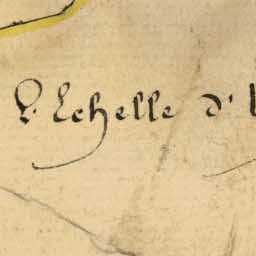 L'Echelle d'